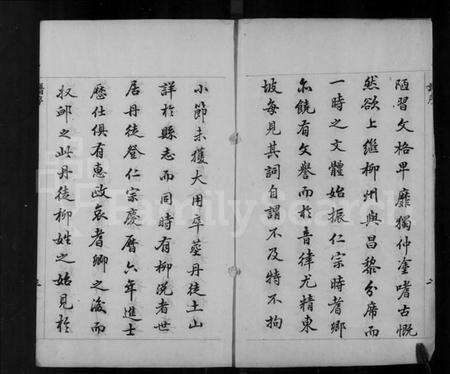 陋習文格卑靡獨仲塗嗜古慨
然欲上繼柳州與昌黎分席而
一時之文體始振仁宗時耆卿
亦饒有文譽而於音律尤精東
坡每見其詞自謂不及特不拘
小節未獲大用卒塟丹徒土山
詳於縣志而同時有柳說者世
居丹徒登仁宗慶曆六年進士
歷仕俱有惠政哀者卿之後而
収卹之此丹徒柳姓之始見於
FamilySearch